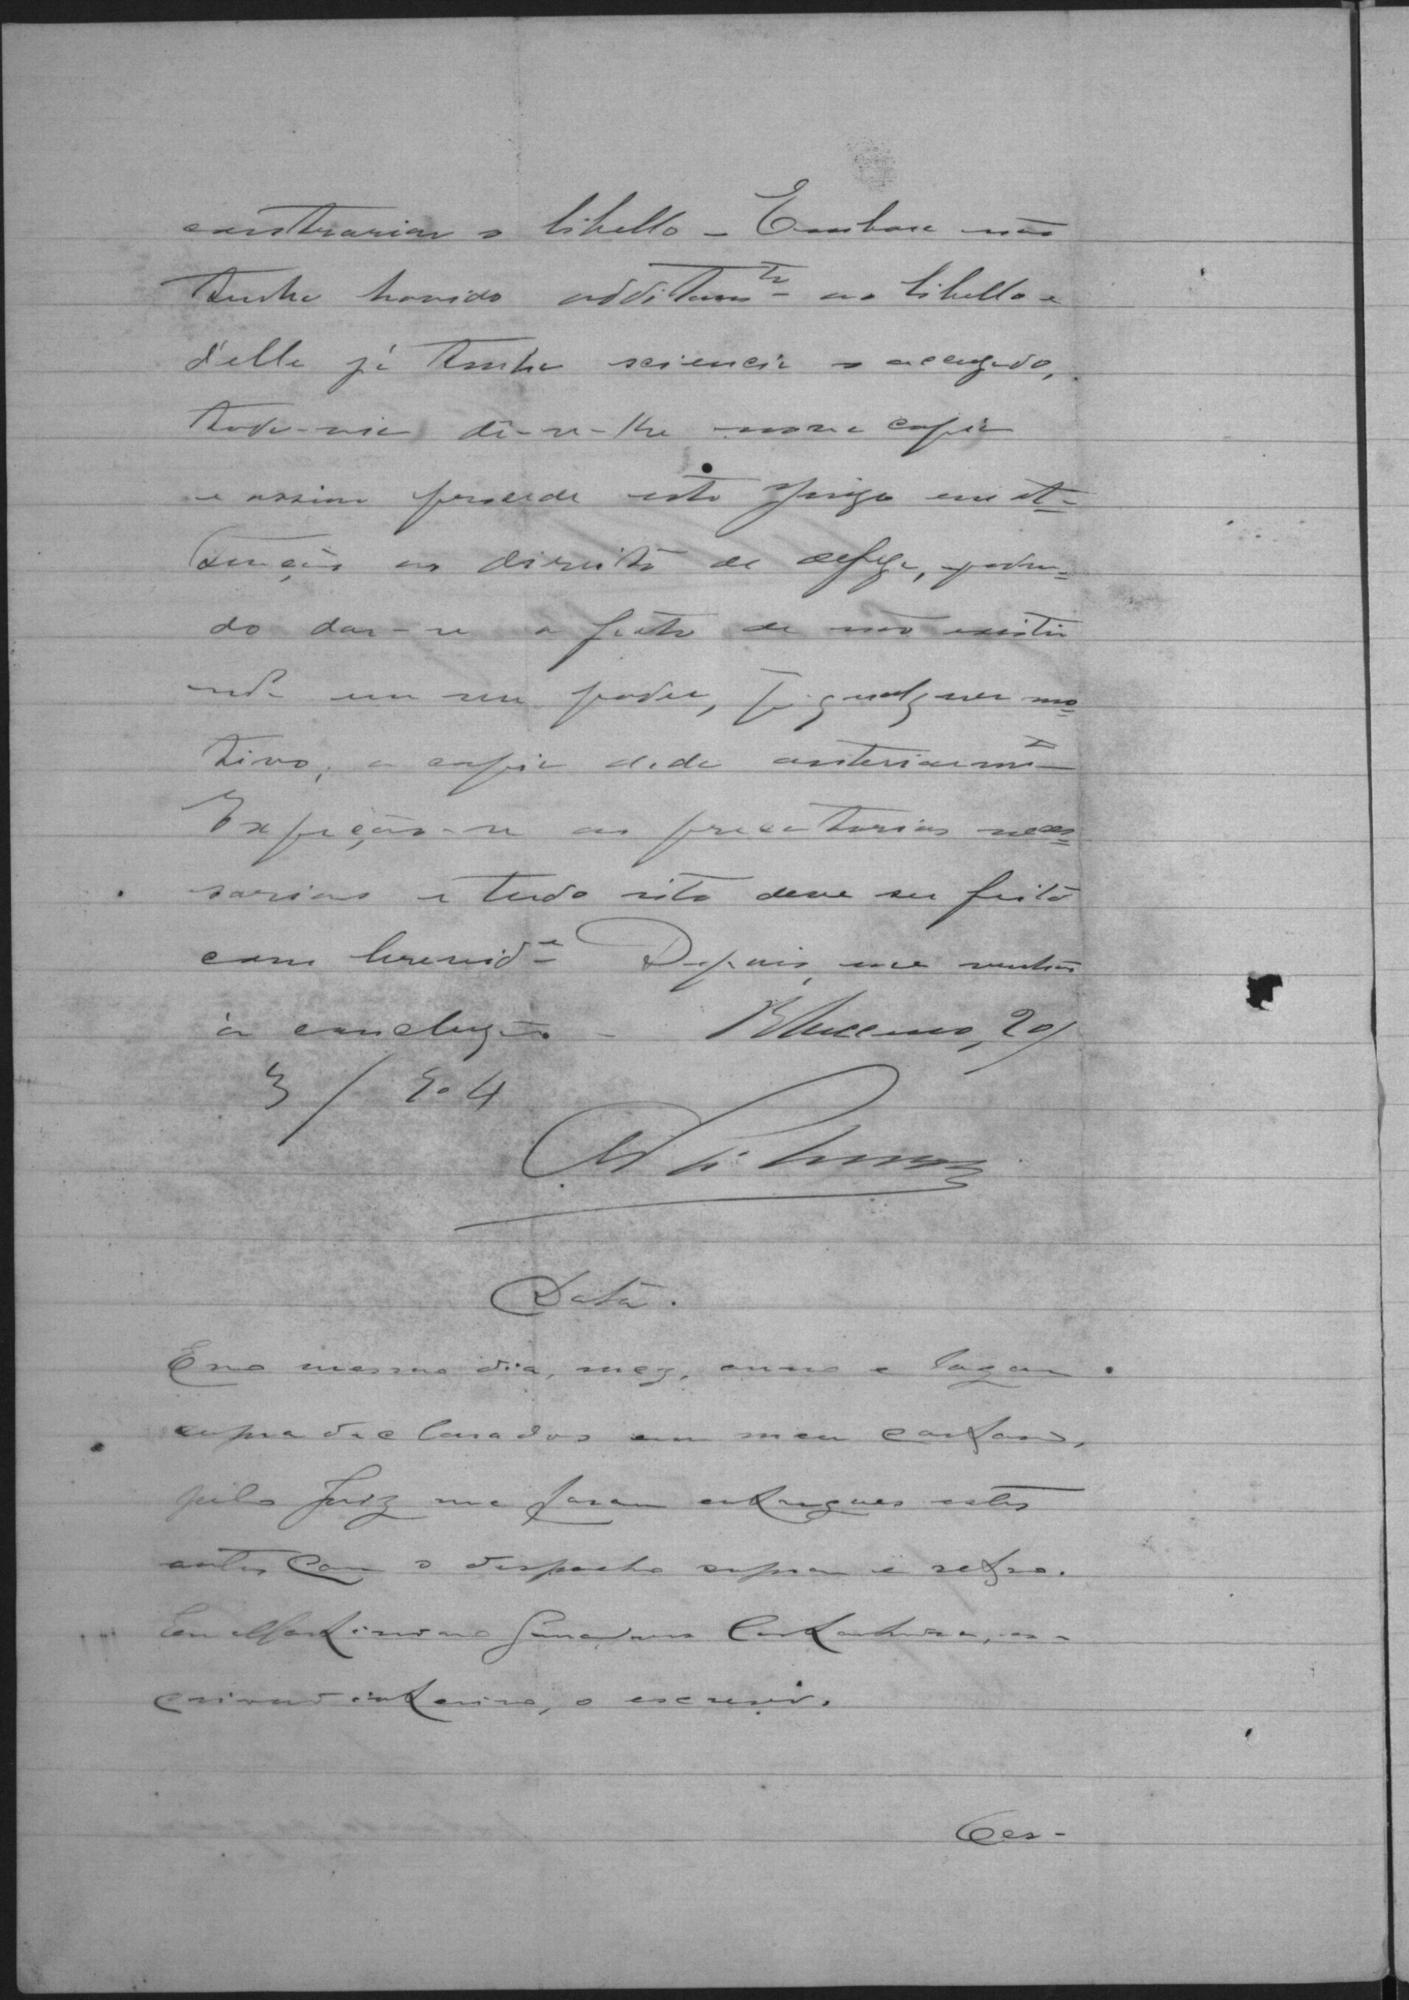 contrariar o libello – Embora não
tenha havido additamto ao libello e
d'elle já tenha sciencia o accuzado,
toda-via dê-se-lhe nova copia
e assim procede este Juizo em at-
tenção ao direito de defeza, poden-
do dar-se o facto de não existir
mais em seu poder, por qualquer mo-
tivo, a copia dada anteriormte
Expeção-se as precatorias neces-
sarias e tudo isto deve ser feito
com brevide Depois, me venhão
á concluzão – Blumenau, 20/
3/904
Data.
E no mesmo dia, mez, anno e lugar
supra declarados em meu cartorio,
pelo Juiz me foram entregues estes
autos com o despacho supra e retro.
Eu, es-
crivão interino, o escrevi.
Cer-